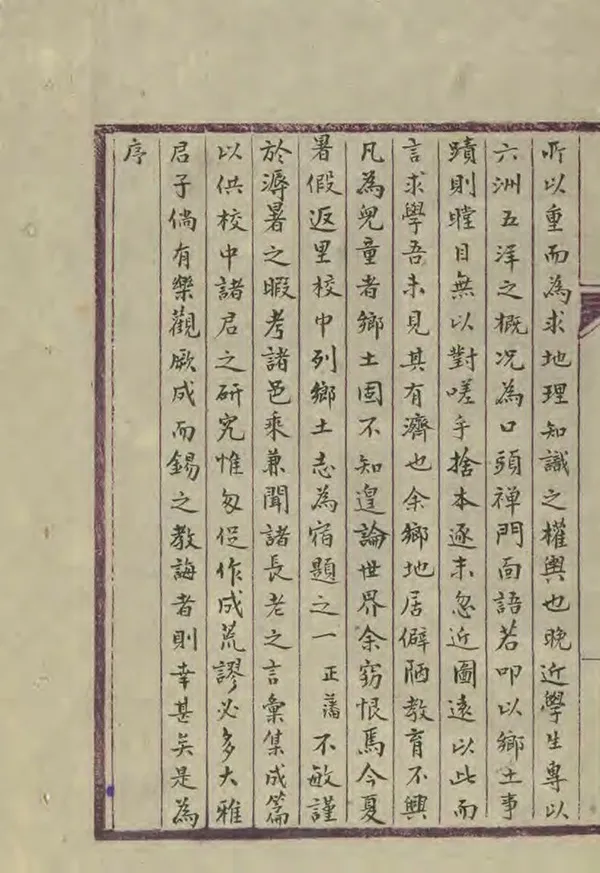 所以重而為求地理知識之權輿也晚近學生專以
六洲五洋之概況為口頭禅門面語若叩以鄉土事
蹟則瞠目無以對嗟乎捨本逐末忽近圖遠以此而
言求學吾未見其有濟也余鄉地居僻陋教育不興
凡為兒童者鄉土固不知遑論世界余窃恨焉今夏
暑假返里校中列鄉土志為宿題之一正藩不敏謹
於溽暑之暇考諸邑乘兼聞諸長老之言彙集成篇
以供校中諸君之研究惟匆促作成荒謬必多大雅
君子倘有樂觀厥成而錫之教誨者則幸甚矣是為
序